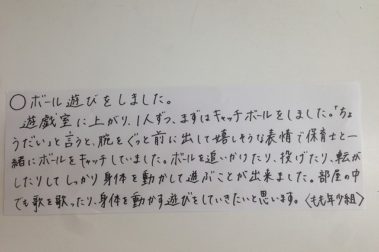 ○ボール遊びをしました。
遊戯室に上がり、1人ずつ、まずはキャッチボールをしました。「ちょ
うだい」と言うと、腕をぐっと前に出して嬉しそうな表情で保育士と一
緒にボールをキャッチしていました。ボールを追いかけたり、投げたり、転が
したりしてしっかり身体を動かして遊ぶことが出来ました。部屋の中
でも歌を歌ったり、身体を動かす遊びをしていきたいと思います。〈もも年少組〉